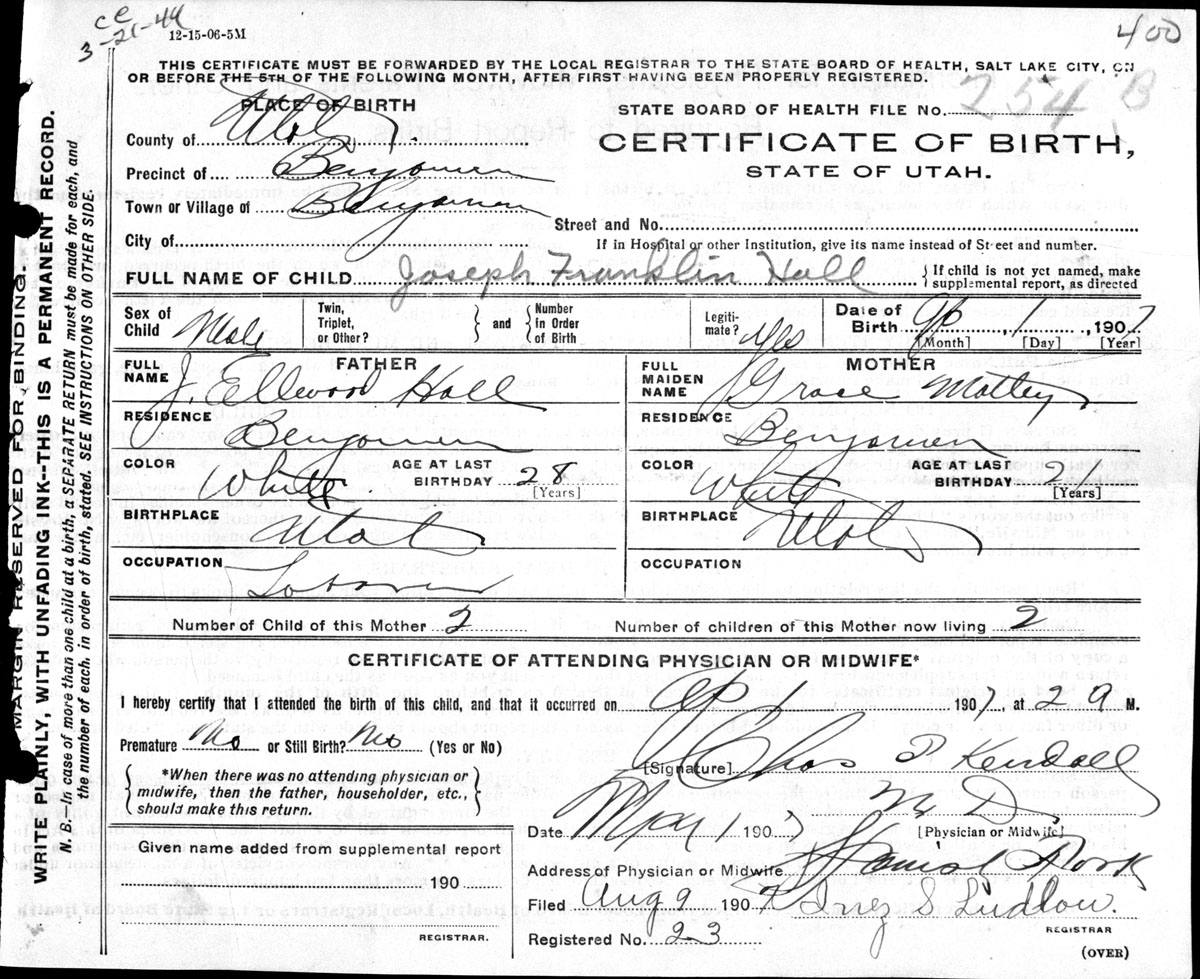 ce
3-21-44
12-15-06-5M
400
THIS CERTIFICATE MUST BE FORWARDED BY THE LOCAL REGISTRAR TO THE STATE BOARD OF HEALTH, SALT LAKE CITY, ON
OR BEFORE THE 5TH OF THE FOLLOWING MONTH, AFTER FIRST HAVING BEEN PROPERLY REGISTERED.
PLACE OF BIRTH
STATE BOARD OF HEALTH FILE No. 254 B
County of Utah
CERTIFICATE OF BIRTH,
STATE OF UTAH.
Precinct of Benjamin
Town or Village of Benjamin
Street and No.
City of
If in Hospital or other Institution, give its name instead of Street and number.
FULL NAME OF CHILD Joseph Franklin Hall { If child is not yet named, make supplemental report, as directed
Sex of Child Male Twin, Triplet, or Other? } and { Number in Order of Birth Legiti- mate? Yes Date of Birth Ap 1, 1907
[Month] [Day] [Year]
FULL NAME FATHER J. Ellwood Hall
RESIDENCE Benjamin
COLOR White AGE AT LAST BIRTHDAY 28 [Years]
BIRTHPLACE Utah
OCCUPATION Laborer
FULL MAIDEN NAME MOTHER Grace
RESIDENCE Benjamin
COLOR White AGE AT LAST BIRTHDAY [Years]
BIRTHPLACE Utah
OCCUPATION
Number of Child of this Mother 2 Number of children of this Mother now living 2
CERTIFICATE OF ATTENDING PHYSICIAN OR MIDWIFE*
I hereby certify that I attended the birth of this child, and that it occurred on Ap 1 1907, at 2 9 M.
Premature No or Still Birth? No (Yes or No)
[Signature] Chas P Kendall
M D
[Physician or Midwife]
{ *When there was no attending physician or
midwife, then the father, householder, etc.,
should make this return. }
Date May 1 1907
Address of Physician or Midwife
Given name added from supplemental report
190
REGISTRAR.
Filed Aug 9 1907 Inez S Ludlow.
REGISTRAR
Registered No. 23
(OVER)
MARGIN RESERVED FOR BINDING.
WRITE PLAINLY, WITH UNFADING INK--THIS IS A PERMANENT RECORD.
N. B.—In case of more than one child at a birth, a SEPARATE RETURN must be made for each, and
the number of each, in order of birth, stated. SEE INSTRUCTIONS ON OTHER SIDE.